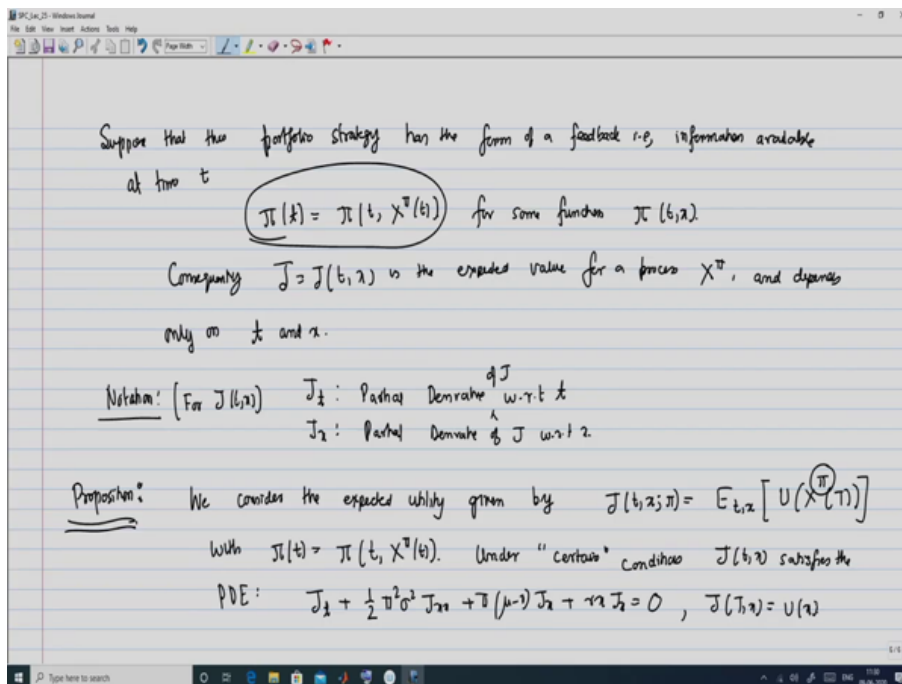 SPC_Lec_25 - Windows Journal
File Edit View Insert Actions Tools Help
Page Width
Suppose that the portfolio strategy has the form of a feedback i.e, information available
at time t
π(t) = π(t, X^π(t)) for some function π(t,x).
Consequently J = J(t,x) is the expected value for a process X^π, and depends
only on t and x.
Notation: (For J(t,x)) J_t : Partial Derivative of J w.r.t t
J_x : Partial Derivative of J w.r.t x
Proposition: We consider the expected utility given by J(t,x;π) = E_{t,x}[U(X^π(T))]
with π(t) = π(t, X^π(t)). Under "certain" conditions J(t,x) satisfies the
PDE: J_t + 1/2 π²σ² J_xx + π(μ-r) J_x + rx J_x = 0, J(T,x) = U(x)
6/6
Type here to search
ENG
11:50